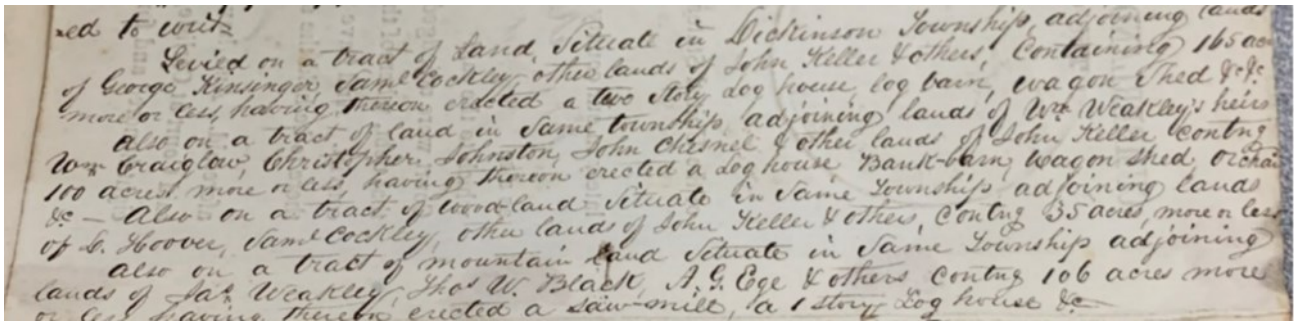 ed to wit:
Levied on a tract of Land, Situate in Dickinson Township, adjoining lands
of George Kinsinger, Saml Cockley, other lands of John Keller & others, Containing 165 acr
more or less, having thereon erected a two story Log house, log barn, wagon Shed &c &c
also on a tract of land in Same township, adjoining lands of Wm Weakley's heirs
Wm Craiglow, Christopher Johnston, John Chesnel & other lands of John Keller Contng
100 acres more or less, having thereon erected a Log house Bank-barn, wagon shed, orchar
&c — Also on a tract of wood-land Situate in Same Township adjoining lands
of Hoover, Saml Cockley, other lands of John Keller & others, Contng 35 acres, more or less
also on a tract of mountain Land Situate in Same Township adjoining
lands of Jas Weakley, Thos W. Black, A. G. Ege & others Contng 106 acres more
or less having thereon erected a saw-mill, a 1 story Log house &c